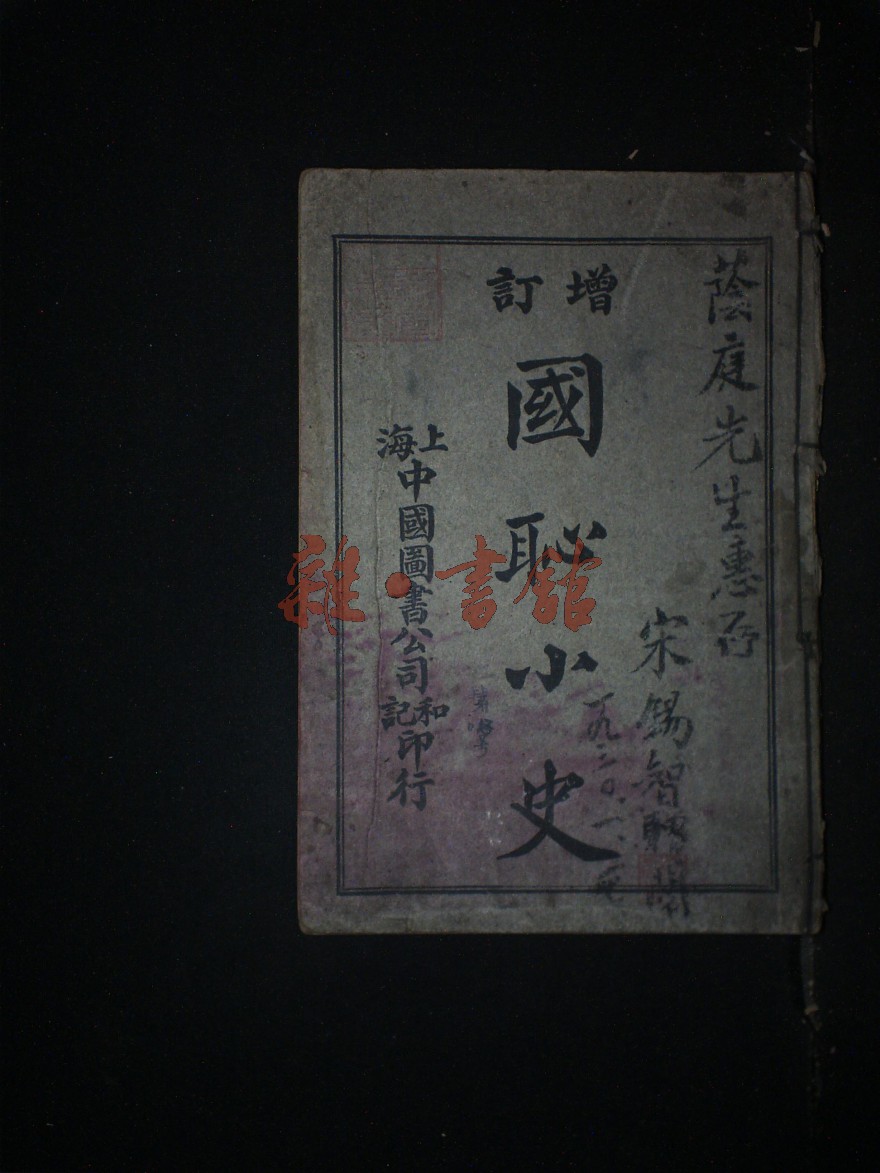 蔭庭先生惠存
宋錫智
一九三〇.一.
增訂
國恥小史
上海中國圖書公司和記印行
雜·書館